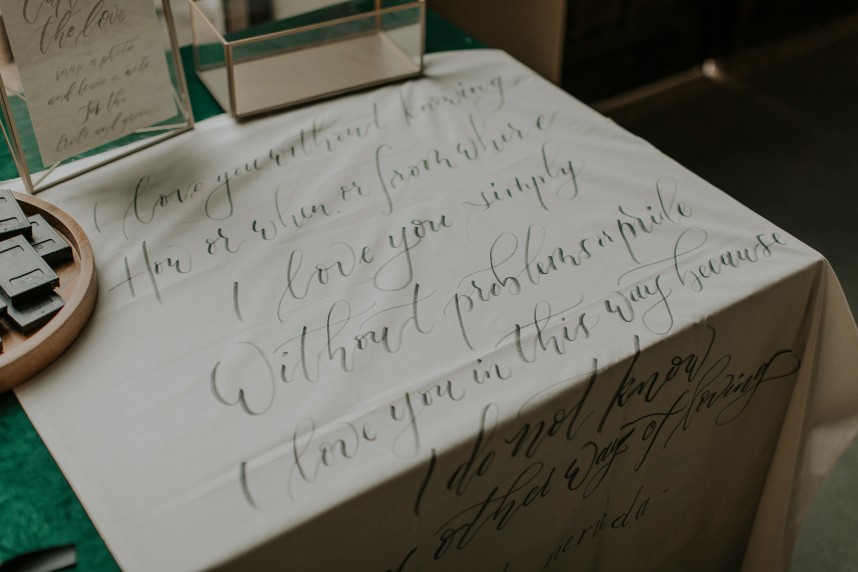 the love
snap a photo
and leave a note
for the
bride and groom
I love you without knowing
How or when, or from where
I love you simply
Without problems or pride
I love you in this way because
I do not know
other way of loving
neruda.